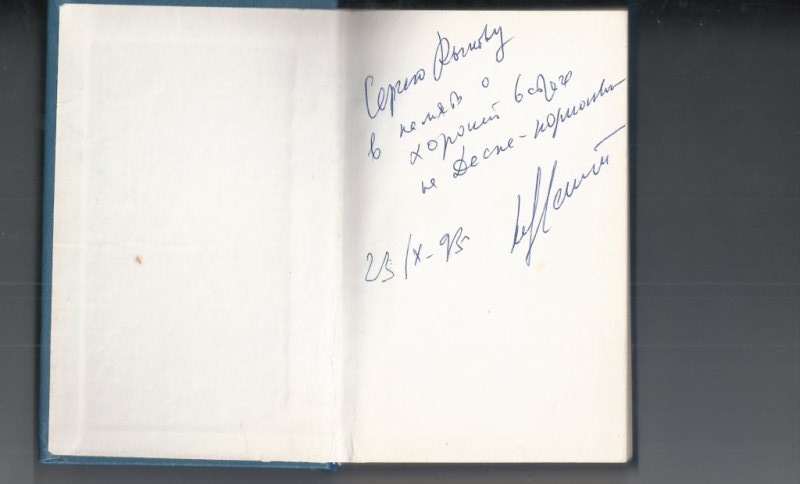 Сергею Рыкову
в память о
хорошей встрече
на Десне-кормилице
25/X-95